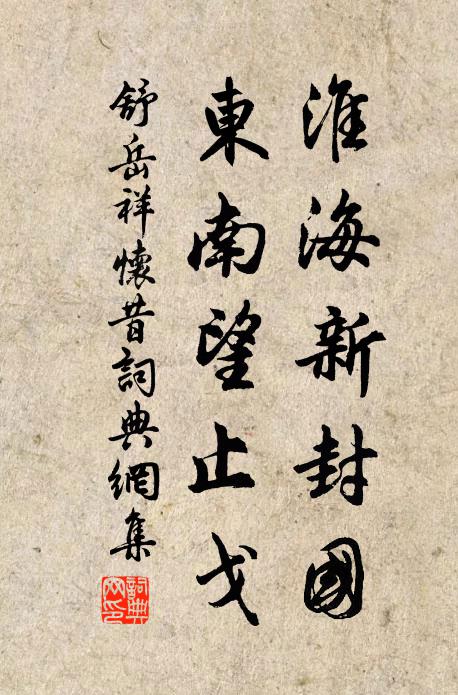 淮海新封國
東南望止戈
舒岳祥懷昔詞典網集
詞典
网印